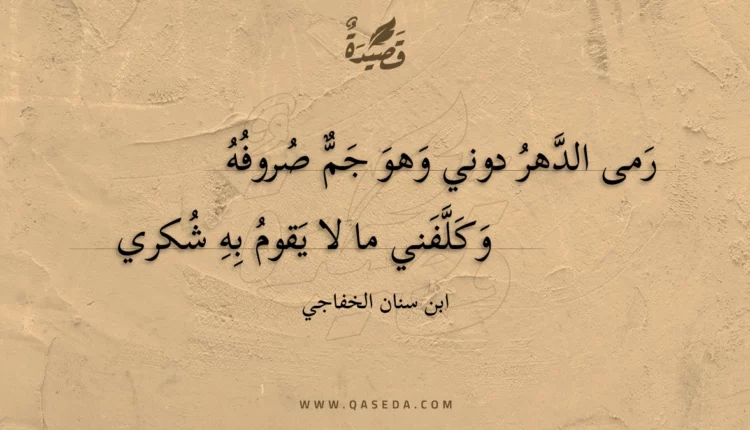 قَصِيدَةٌ
رَمى الدَّهرُ دوني وَهوَ جَمٌّ صُروفُهُ
وَكَلَّفَني ما لا يَقومُ بِهِ شُكري
ابن سنان الخفاجي
WWW.QASEDA.COM